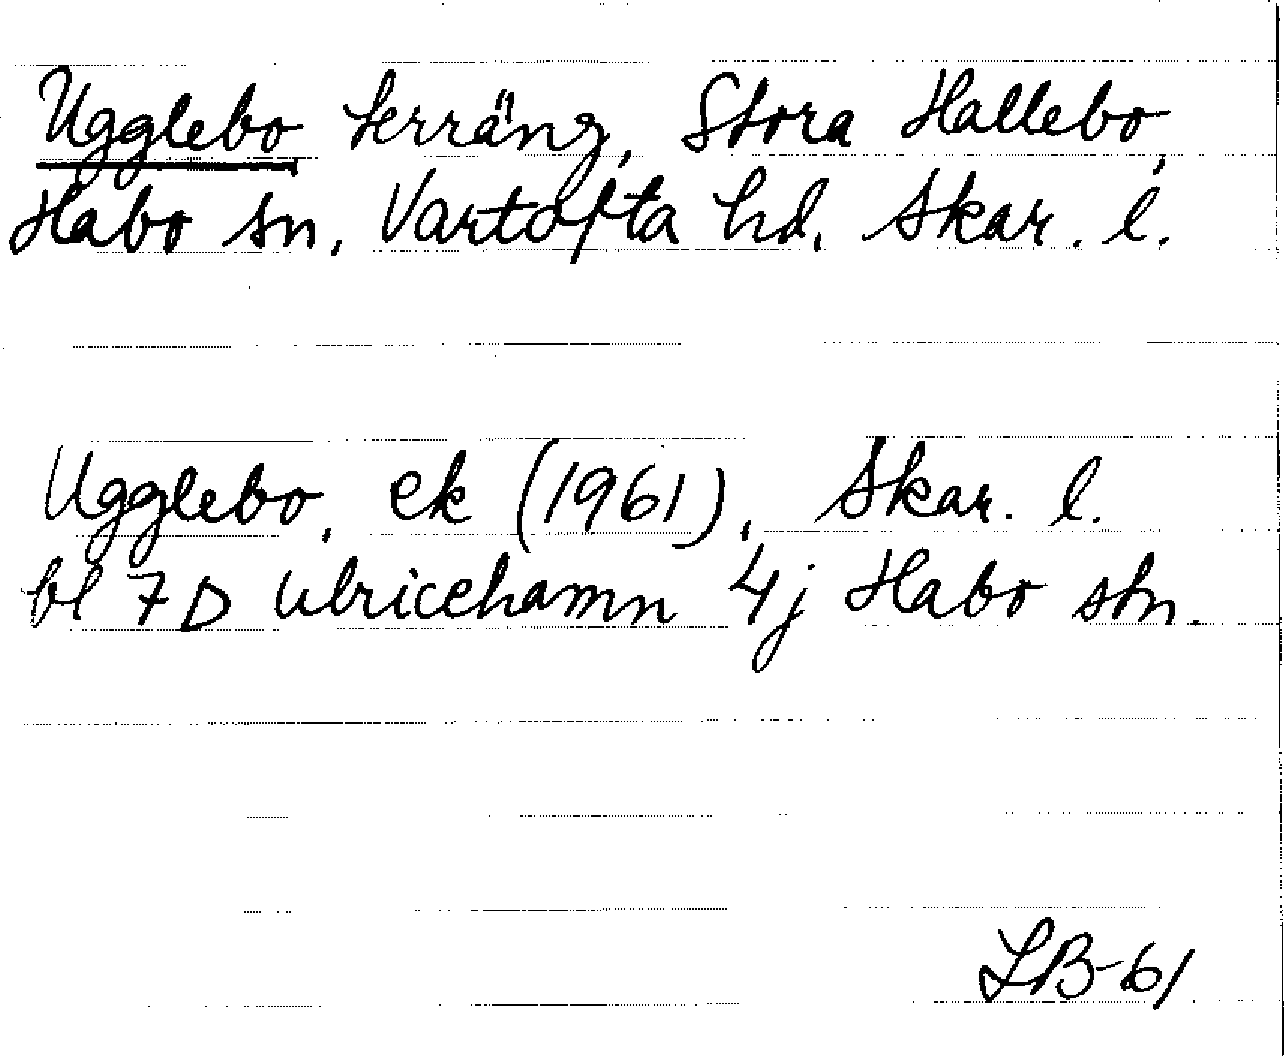 Ugglebo terräng, Stora Hallebo,
Habo sn, Vartofta hd, Skar. l.
Ugglebo, ek (1961), Skar. l.
bl 7D Ulricehamn 4j Habo stn.
LB-61